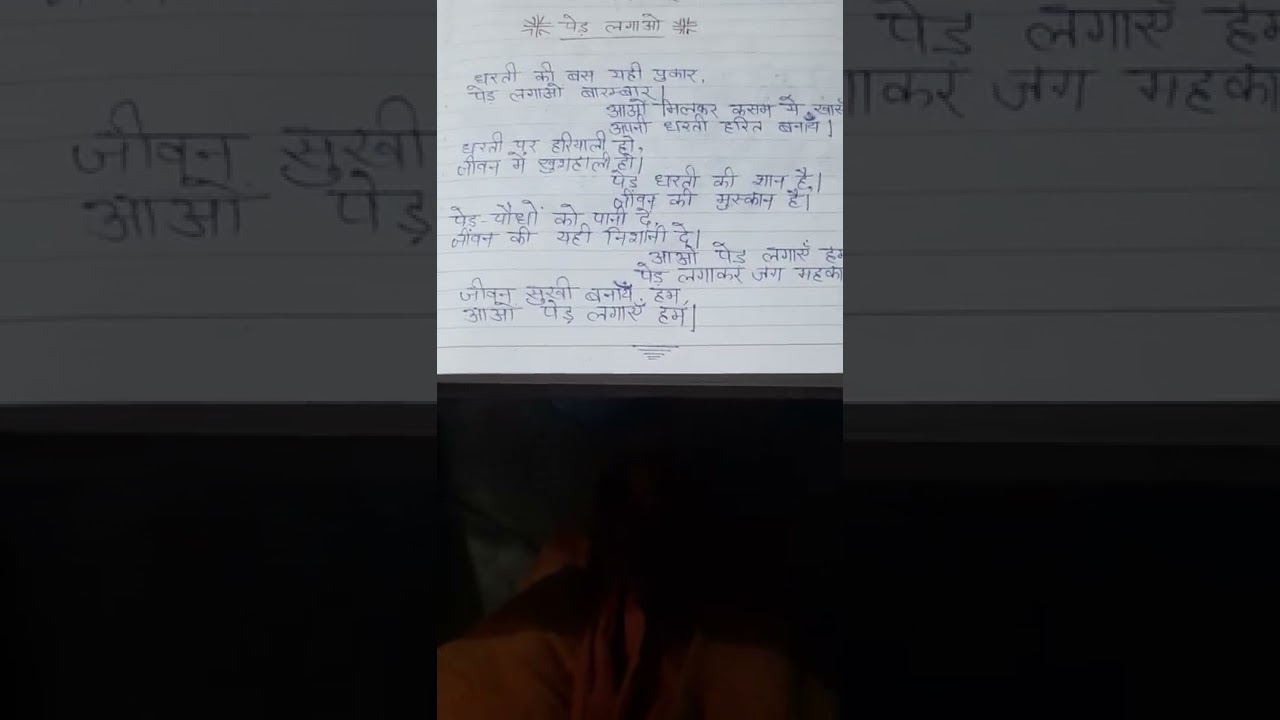 पेड़ लगाओ
धरती की बस यही पुकार,
पेड़ लगाओ बारम्बार।
आओ मिलकर कसम ये
अपनी धरती हरित बनायें।
धरती पर हरियाली हो,
जीवन में खुशहाली हो।
पेड़ धरती की शान है।
जीवन की मुस्कान है।
पेड़-पौधों को पानी दे,
जीवन की यही निशानी दे।
आओ पेड़ लगाएँ हम
पेड़ लगाकर जग महका
जीवन सुखी बनायें हम,
आओ पेड़ लगाएँ हम।